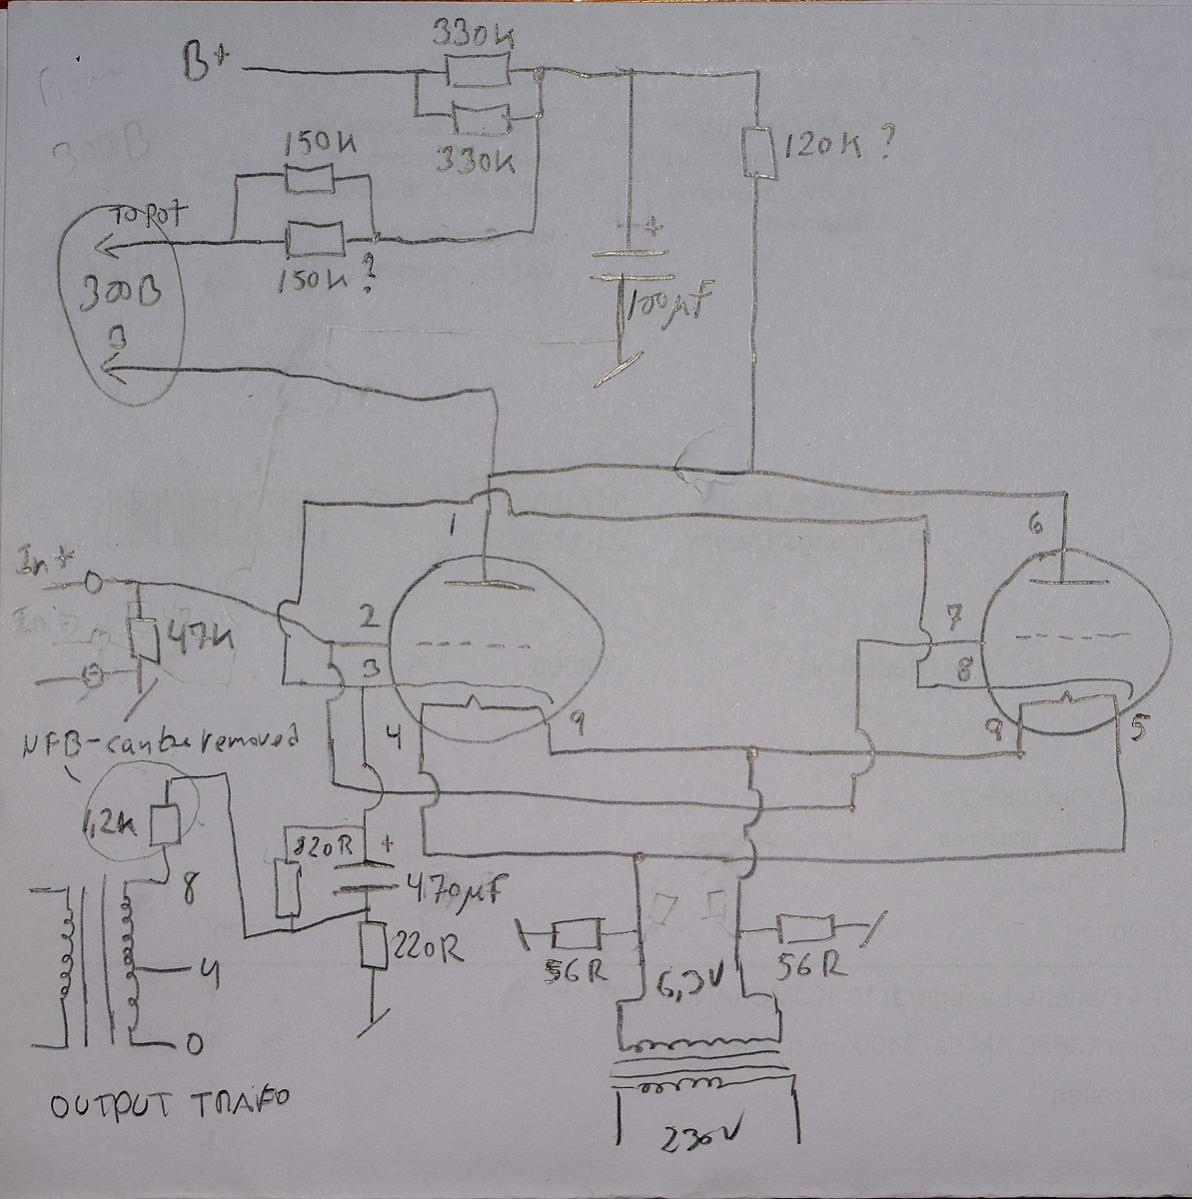 330K
B+
330K
150K
120K ?
TO POT
150K ?
300B
3
+
100µF
1
6
In+
47K
2
7
3
8
4
9
9
5
NFB-can be removed
1,2K
820R
+
8
470µF
220R
4
56R
6,3V
56R
0
OUTPUT TRAFO
230V